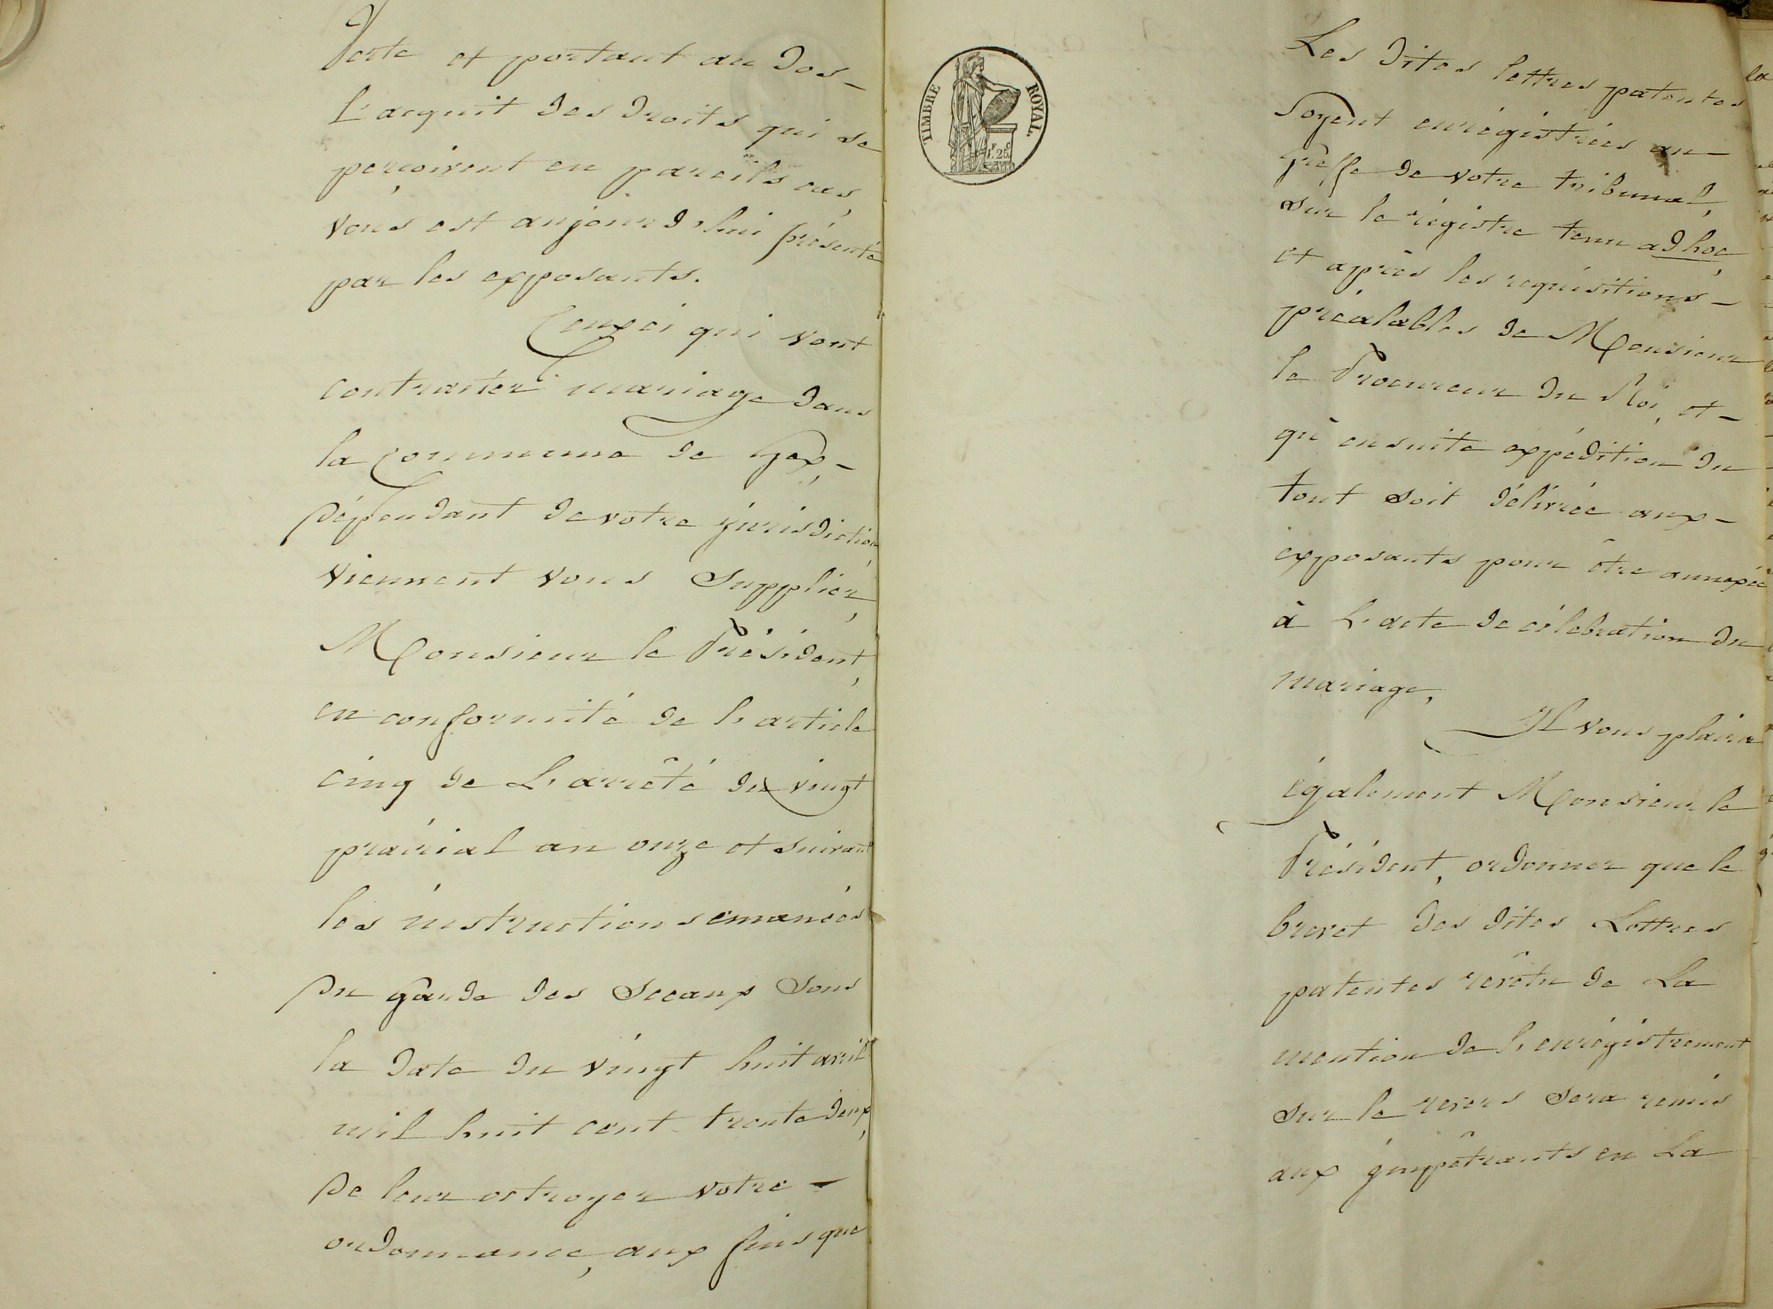 Verte et portant au dos –
L'acquit des droits qui se
perçoivent en pareils cas,
vous est aujourd'hui présenté
par les exposants.
Ceux ci qui vont
contracter mariage dans
la commune de Gex, –
dépendant de votre jurisdiction,
viennent vous supplier,
Monsieur le Président,
en conformité de l'article
cinq de L'arrêté du vingt
prairial an onze et suivant
les instructions émanées
du gârde des Sceaux sous
la date du vingt huit avril
mil huit cent trente deux,
de leur octroyer votre –
ordonnance, aux fins que
TIMBRE ROYAL
Les dites lettres patentes
soyent enrégistrées au –
greffe de votre tribunal,
sur le régistre tenu ad hoc,
et après les requisitions –
préalables de Monsieur
le Procureur du Roi, et –
qu'ensuite expédition du
tout soit délivrée aux –
exposants pour être annexée
à L'acte de célébration du
mariage,
Il vous plaira
également Monsieur le
Président, ordonner que le
brevet des dites Lettres
patentes revêtu de La
mention de l'enrégistrement
sur le revers sera remis
aux impêtrants en La